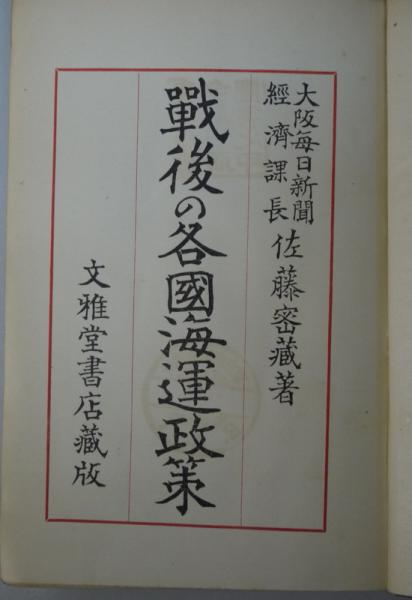 大阪每日新聞
經濟課長
佐藤密藏著
戰後の各國海運政策
文雅堂書店藏版